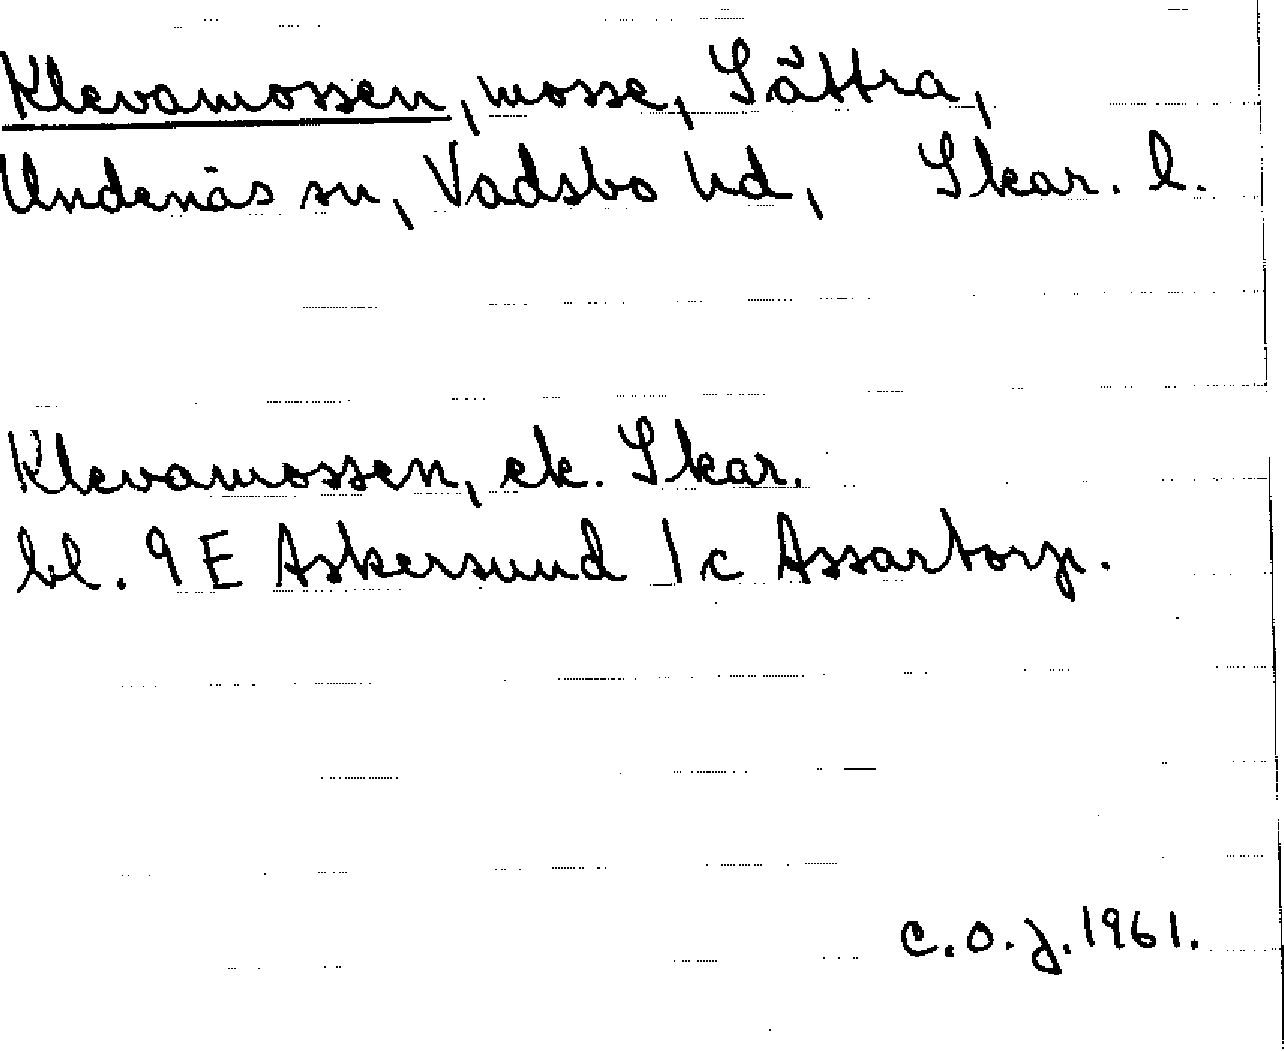 Klevamossen, mosse, Sättra,
Undenäs sn, Vadsbo hd, Skar. l.
Klevamossen, ek. Skar.
bl. 9 E Askersund 1 c Assartorp.
C.O.J. 1961.